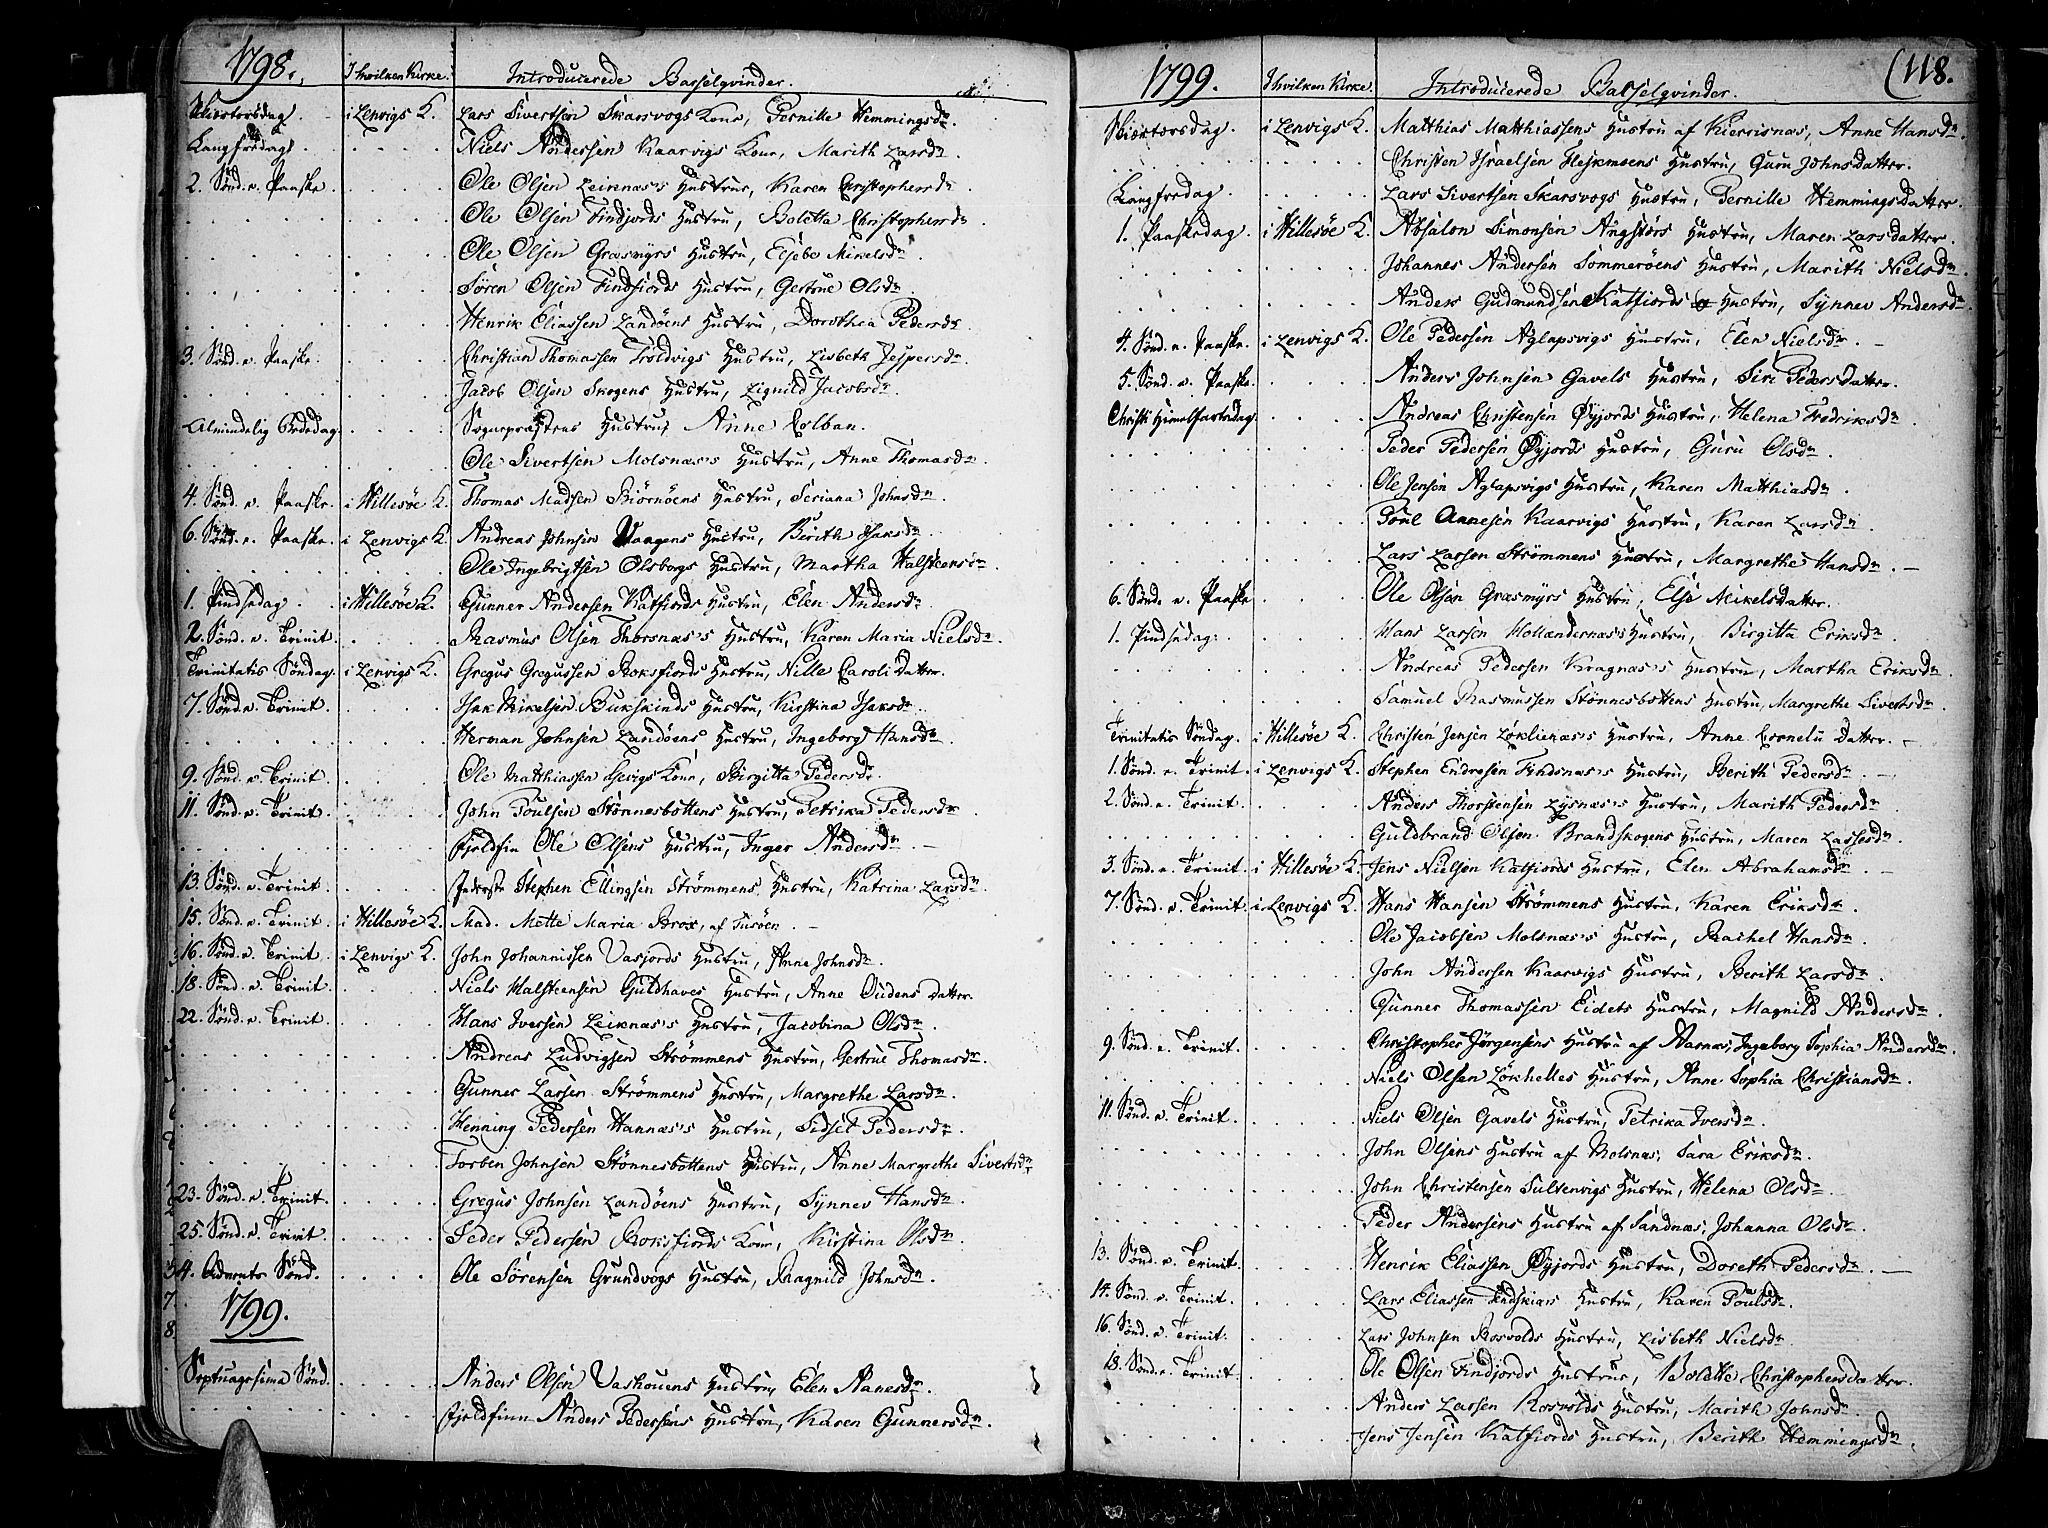 1798. I hvilken Kirke. Introducerede Barselqvinder.
Skiertorsdag. i Lenvigs K. Lars Sivertsen Skarsvogs Kone, Pernille Hemmingsdr.
Langfredag Niels Andersen Kaarvigs Kone, Marith Larsdr.
2. Sønd. e. Paaske Ole Olsen Leiknæs's Hustrue, Karen Christophersdr.
Ole Olsen Findjords Hustru, Boletta Christophersdr.
Ole Olsen Græsmyrs Hustru, Elsebe Mikelsdr.
Søren Olsen Findfiords Hustru, Gertrue Olsdr.
Henrik Eliassen Landøens Hustru, Dorothea Pedersdr.
3. Sønd. e. Paaske. Christian Thomassen Troldvigs Hustru, Lisbeth Jespersdr.
Jacob Olsen Skogens Hustru, Lignild Jacobsdr.
Almindelig Bededag. Sognepræstens Hustru, Anne Colban.
Ole Sivertsen Molsnæs's Hustru, Anne Thomasdr.
4. Sønd. e. Paaske. i Hillesøe K. Thomas Madsen Biørnøens Hustru, Seriana Johnsdr.
6. Sønd. e. Paaske. i Lenvigs K. Andreas Johnsen Vangens Hustru, Berith Isaksdr.
Ole Ingebrigtsen Olsborgs Hustru, Martha Halsteensdr.
1. Pindsedag. i Hillesøe K. Gunner Andersen Katfiords Hustru, Elen Andersdr.
2. Sønd. e. Trinit. Rasmus Olsen Thorsnæs's Hustru, Karen Maria Nielsdr.
Trinitatis Søndag. i Lenvigs K. Gregus Gregussen Roksfiords Hustru, Nille Caroli Datter.
7. Sønd. e. Trinit. Isak Mikelsen Bukskinds Hustru, Kirstina Isaksdr.
Herman Johnsen Landøens Hustru, Ingeborg Hansdr.
9. Sønd. e. Trinit. Ole Matthiassen Gevigs Kone, Birgitta Pedersdr.
11. Sønd. e. Trinit. John Poulsen Stønnesbottens Hustru, Petrika Pedersdr.
Fieldfin Ole Olsens Hustru, Inger Andersdr.
13. Sønd. e. Trinit. Stephen Ellingsen Strømmens Hustru, Katrina Larsdr.
15. Sønd. e. Trinit. i Hillesøe K. Mad. Mette Maria Brox, af Tusøen.
16. Sønd. e. Trinit. i Lenvigs K. John Johannissen Vasjords Hustru, Anne Johnsdr.
18. Sønd. e. Trinit. Niels Halsteensen Guldhaves Hustru, Anne Oudens Datter.
22. Sønd. e. Trinit. Hans Iversen Leiknæs's Hustru, Jacobina Olsdr.
Andreas Ludvigsen Strømmens Hustru, Gertrue Thomasdr.
Gunner Larsen Strømmens Hustru, Margrethe Larsdr.
Henning Pedersen Hannæs's Hustru, Sidsel Pedersdr.
Torben Johnsen Stønnesbottens Hustru, Anne Margrethe Sivertsdr.
23. Sønd. e. Trinit. Gregus Johnsen Landøens Hustru, Synnev Hansdr.
25. Sønd. e. Trinit. Peder Pedersen Roksfiords Kone, Kirstina Olsdr.
4. Advents Sønd. Ole Sørensen Grundvogs Hustru, Ragnild Johnsdr.
1799.
Septuagesima Sønd. Anders Olsen Vashouens Hustru, Elen Aanesdr.
Fieldfinn Anders Pedersens Hustru, Karen Gunnersdr.
1799. I hvilken Kirke. Introducerede Barselqvinder. (118.
Skiærtorsdag. i Lenvigs K. Matthias Matthiassens Hustru af Kierrisnæs, Anne Hansdr.
Christen Israelsen Flejsmoens Hustru, Guru Johnsdatter.
Langfredag Lars Sivertsen Skarsvogs Hustru, Pernille Hemmingsdatter.
1. Paaskedag. i Hillesøe K. Absalon Simonsen Angstørs Hustru, Maren Larsdatter.
Johannes Andersen Sommerøens Hustru, Marith Nielsdr.
Anders Gudmundsen Katfiords Hustru, Synnev Andersdr.
4. Sønd. e. Paaske. i Lenvigs K. Ole Pedersen Aglapsvigs Hustru, Elen Nielsdr.
5. Sønd. e. Paaske. Anders Johnsen Gavels Hustru, Siri Pedersdatter.
Christi Himmelfartsdag. Andreas Christensen Øyjords Hustru, Helena Fredriksdr.
Peder Pedersen Øyjords Hustru, Guru Olsdr.
Ole Jensen Aglapsvigs Hustru, Karen Matthiasdr.
Poul Annesen Kaarvigs Hustru, Karen Larsdr.
Lars Larsen Strømmens Hustru, Margrethe Hansdr.
6. Sønd. e. Paaske Ole Olsen Græsmyrs Hustru, Else Mikelsdatter.
1. Pindsedag. Hans Larsen Hollændernæs's Hustru, Birgitta Eriksdr.
Andreas Pedersen Kragnæs's Hustru, Martha Eriksdr.
Samuel Rasmussen Stønnesbottens Hustru, Margrethe Sivertsdr.
Trinitatis Søndag. i Hillesøe K. Christen Jensen Løklienæs's Hustru, Anne Cornelii Datter.
1. Sønd. e. Trinit. i Lenvigs K. Stephen Endresen Findsnæs's Hustru, Berith Pedersdr.
2. Sønd. e. Trinit. Anders Thorstensen Lysnæs's Hustru, Marith Pedersdr.
Guldbrand Olsen Brandskogens Hustru, Maren Lassesdr.
3. Sønd. e. Trinit. i Hillesøe K. Jens Nielsen Katfiords Hustru, Elen Abrahamsdr.
7. Sønd. e. Trinit. i Lenvigs K. Hans Hansen Strømmens Hustru, Karen Eriksdr.
Ole Jacobsen Molsnæs's Hustru, Rachel Hansdr.
John Andersen Kaarvigs Hustru, Berith Larsdr.
Gunner Thomassen Eidets Hustru, Magnild Andersdr.
9. Sønd. e. Trinit. Christopher Jørgensens Hustru af Aarnæs, Ingeborg Sophia Andersdr.
Niels Olsen Løkhelles Hustru, Anne Sophia Christiansdr.
11. Sønd. e. Trinit. Niels Olsen Gavels Hustru, Petrika Iversdr.
John Olsens Hustru af Molsnæs, Sara Eriksdr.
John Christensen Sultenvigs Hustru, Helena Olsdr.
Peder Andersens Hustru af Sandnæs, Johanna Olsdr.
13. Sønd. e. Trinit. Henrik Eliassen Øyjords Hustru, Doreth Pedersdr.
14. Sønd. e. Trinit. Lars Eliassen Hustru, Karen Poulsdr.
16. Sønd. e. Trinit. Lars Johnsen Rosvolds Hustru, Lisbeth Nielsdr.
18. Sønd. e. Trinit. Ole Olsen Findjords Hustrue, Bolette Christophersdatter.
Anders Larsen Rosvolds Hustru, Marith Johnsdr.
Jens Jensen Katfiords Hustru, Berith Hemmingsdr.